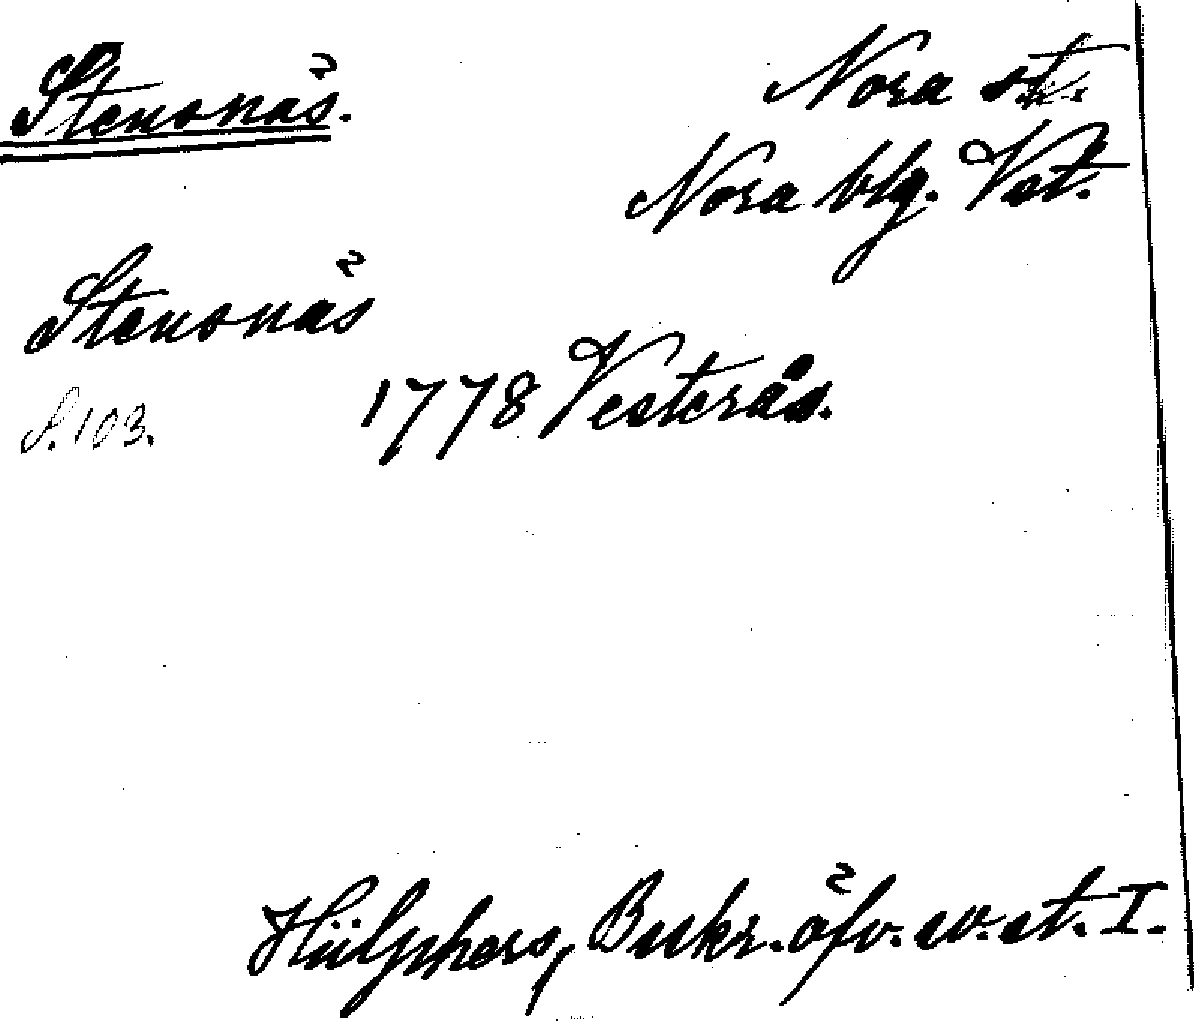 Stensnäs.
Nora st.
Nora blg. Vst.
Stensnäs
S. 103.
1778 Vesterås.
Hülphers, Beskr. öfv. sv. st. I.